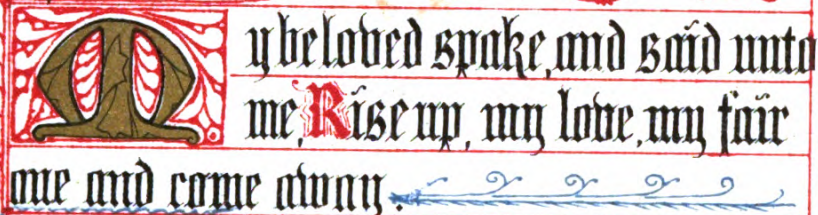 My beloved spake, and said unto
me, Rise up, my love, my fair
one and come away.